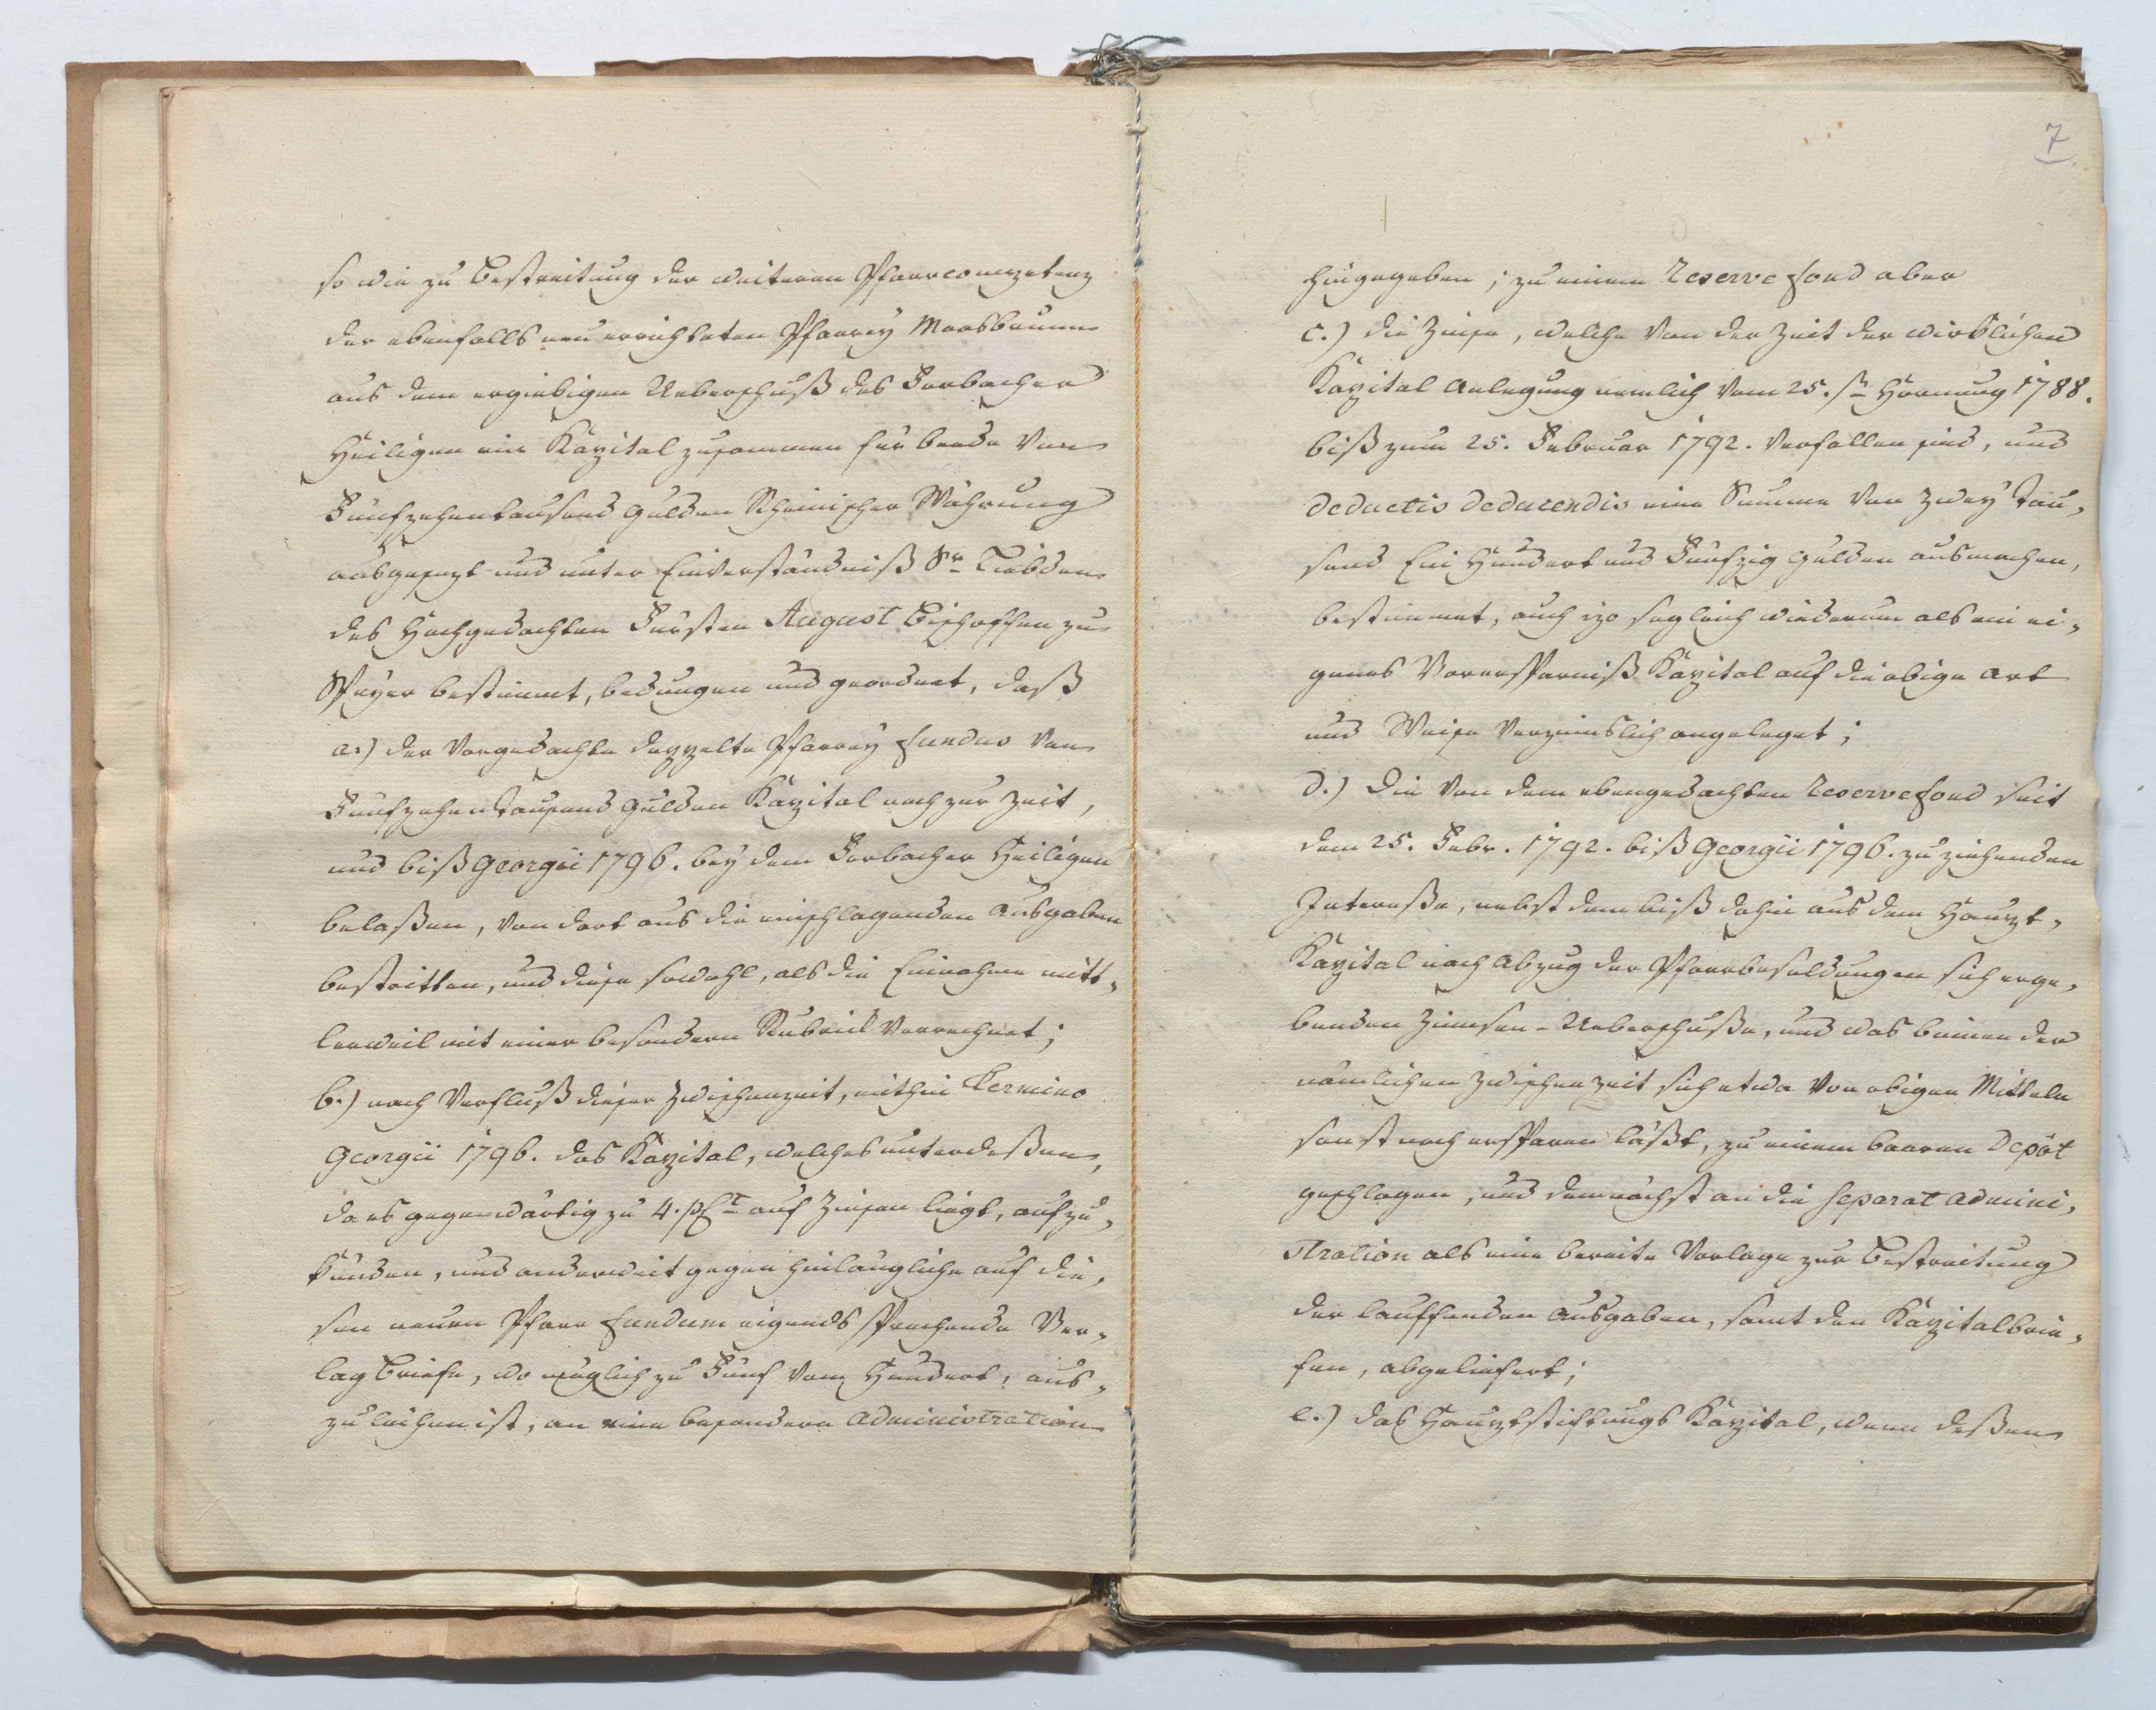 so wie zu Bestreitung der weiteren Pfarrcompetenz
der ebenfalls neu errichteten Pfarrey Moosbrunn
aus dem ergiebigen Ueberschuß des Forbacher
Heiligen ein Kapital zusammen für beede von
Fünfzehentausend Gulden Rheinischer Währung
ausgesezt und unter Einverständniß Sr Liebden
des Hochgedachten Fürsten August Bischoffen zu
Speyer bestimmt, bedungen und geordnet, daß
a.) der vorgedachte doppelte Pfarrey fundus von
Fünfzehen Tausend Gulden Kapital noch zur Zeit,
und biß Georgii 1796. bey dem Forbacher Heiligen
belaßen, von dort aus die einschlagenden Ausgaben
bestritten, und diese sowohl, als die Einnahme mitt„
lerweil mit einer besondern Rubrick verrechnet;
b.) nach Verfluß dieser Zwischenzeit, mithin Termino
Georgii 1796. das Kapital, welches unterdeßen,
da es gegenwärtig zu 4. pCt auf Zinsen liegt, aufzu„
künden, und anderweit gegen hinlängliche auf die„
sen neuen Pfarr fundum eigends sprechende Ver„
lag Briefe, wo möglich zu Fünf vom Hundert, aus„
zuleihen ist, an eine besondere Administration
7
hingegeben; zu einem Reserve fond aber
c.) die Zinse, welche von der Zeit der wirklichen
Kapital Anlegung nemlich vom 25.sten Hornung 1788.
biß zum 25. Februar 1792. verfallen sind, und
deductis deducendis eine Summe von zwey Tau„
send Ein Hundert und Fünfzig Gulden ausmachen,
bestimmet, auch izo sogleich wiederum als ein ei„
genes Vorersparniß Kapital auf die obige Art
und Weise verzinslich angeleget;
d.) Die von dem ebengedachten Reservefond seit
dem 25. Febr. 1792. biß Georgii 1796. zu ziehenden
Intereße, nebst dem biß dahin aus dem Haupt„
Kapital nach Abzug der Pfarrbesoldungen sich erge„
benden Zinnsen-Ueberschuße, und was binnen der
nämlichen Zwischenzeit sich etwa von obigen Mitteln
sonst noch ersparen läßt, zu einem baaren Depôt
geschlagen, und demnächst an die separat Admini„
stration als eine bereite Vorlage zur Bestreitung
der lauffenden Ausgaben, samt den Kapitalbrie„
fen, abgeliefert;
e.) das Hauptstiftungs Kapital, wenn deßen